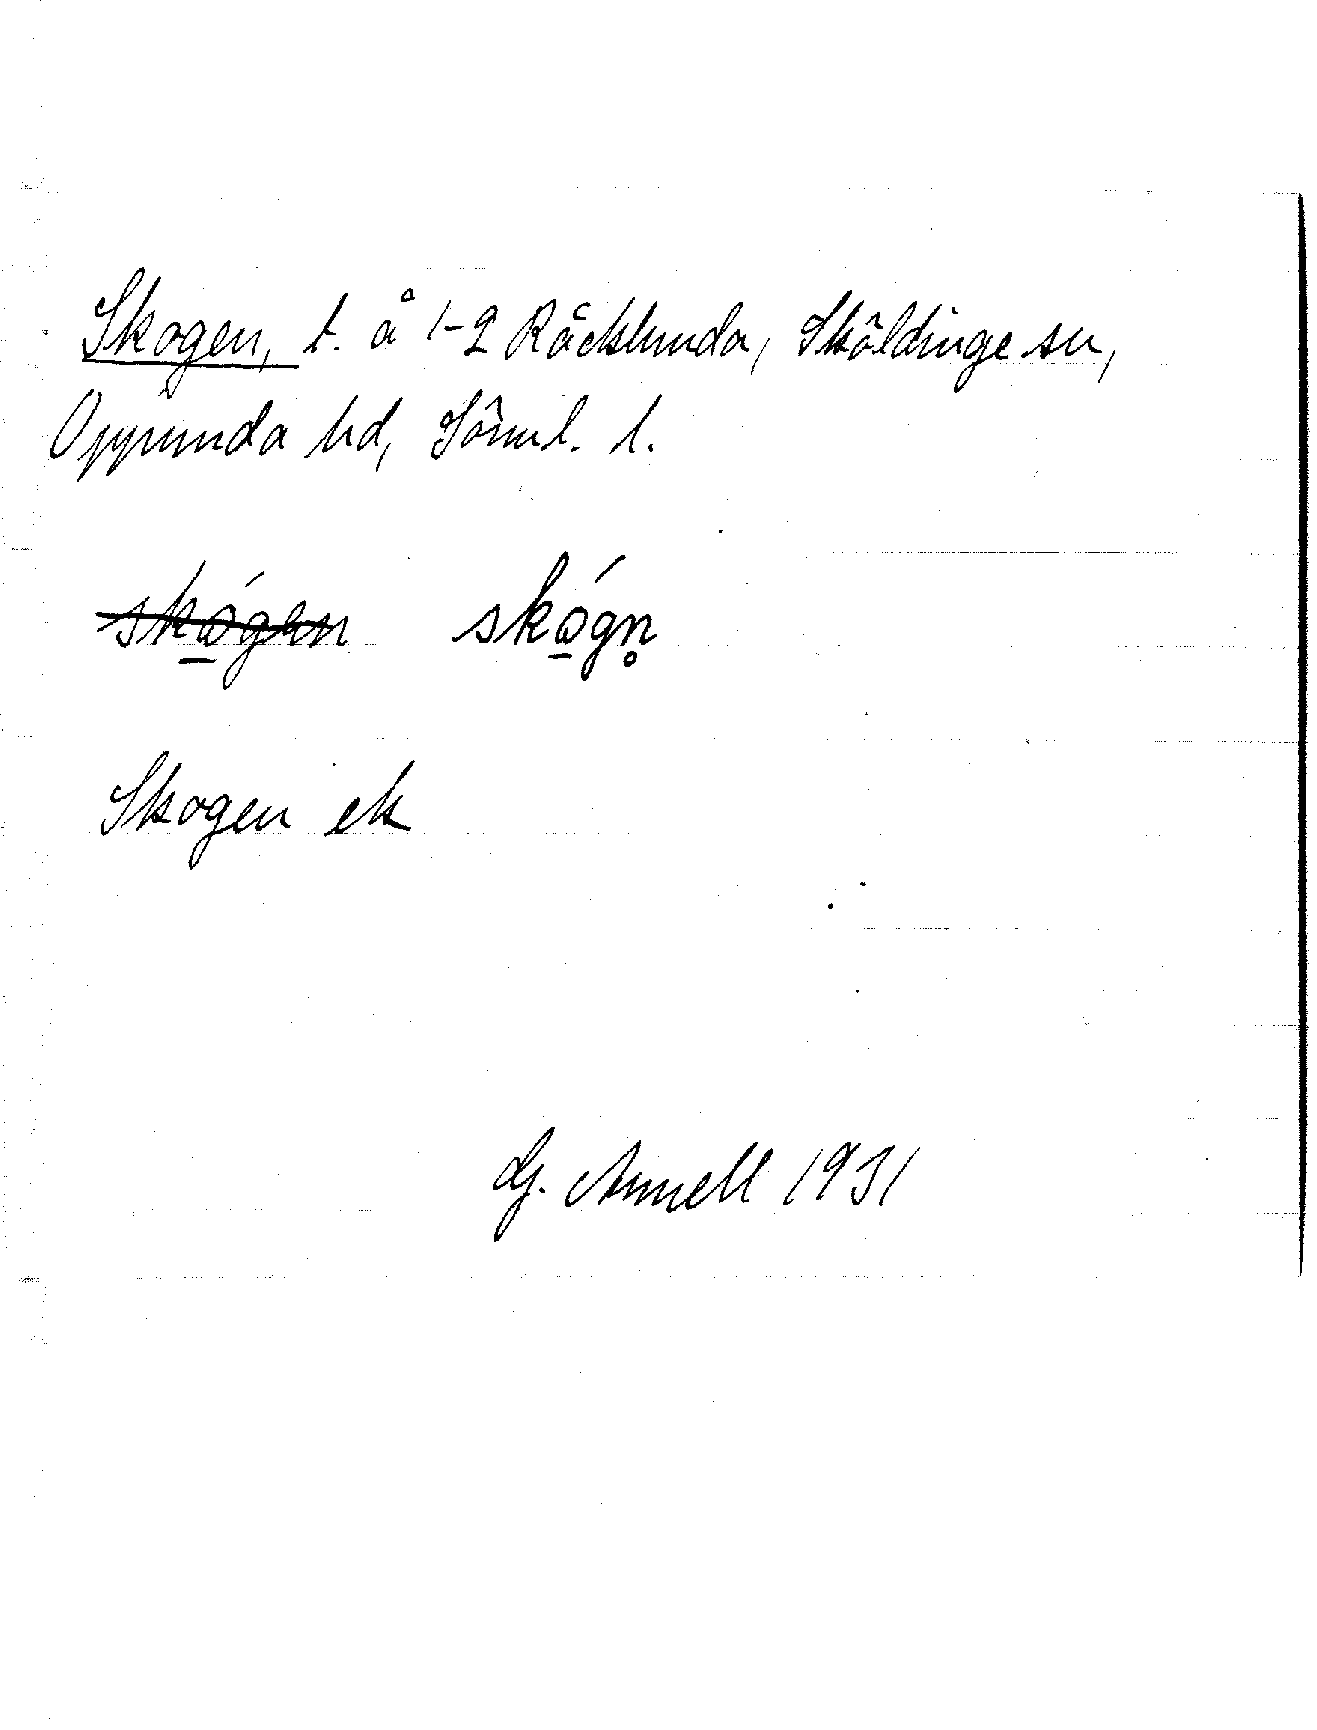 Skogen, t. å 1-2 Räcklunda, Sköldinge sn,
Oppunda hd, Söml. l.
sko̲´gen sko̲´gn̥
Skogen ek
G. Annell 1931